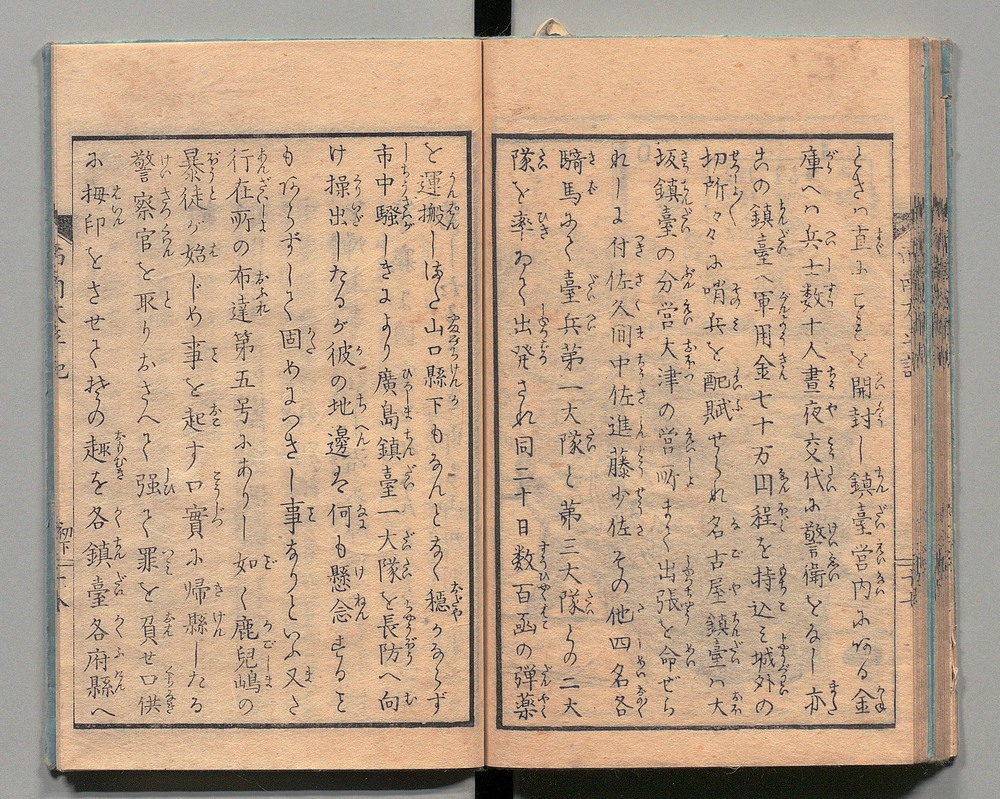 ときハ直に
庫へハ兵士数十人晝夜交代に警衛をなし亦
の鎮臺へ軍用金七十万円程を持込ミ城外の
切所々々に哨兵を配賦せられ名古屋鎮臺ハ大
坂鎮臺の分営大津の営所まで出張を命ぜら
れしに付佐久间中佐進藤少佐その他四名各
騎馬にて臺兵第一大隊と第三大隊との二大
隊を率ゐて出発され同二十日数百函の弾薬
を運搬しまた山口縣下もなんとなく穏かならず
市中騒しきより廣島鎮臺一大隊を長防へ向
け操出したるが彼の地邊は何も懸念するこ
もあらずして固めにつきし事なりといふ又さ
行在所の布達第五号にありし如く鹿兒嶋の
暴徒が始じめ事を起す口實に帰縣したる
警察官を取りおさへて强て罪を負せ口供
に拇印をさせて其の趣を各鎮臺各府縣へ
初下